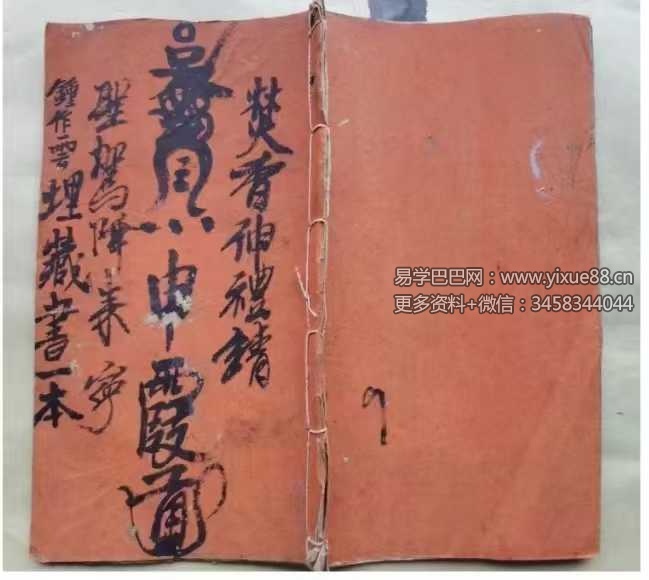 焚香伸禮請
聖駕降来寧
鍾作雲埋藏書一本
易学巴巴网：www.yixue88.cn
更多资料+微信：3458344044
9